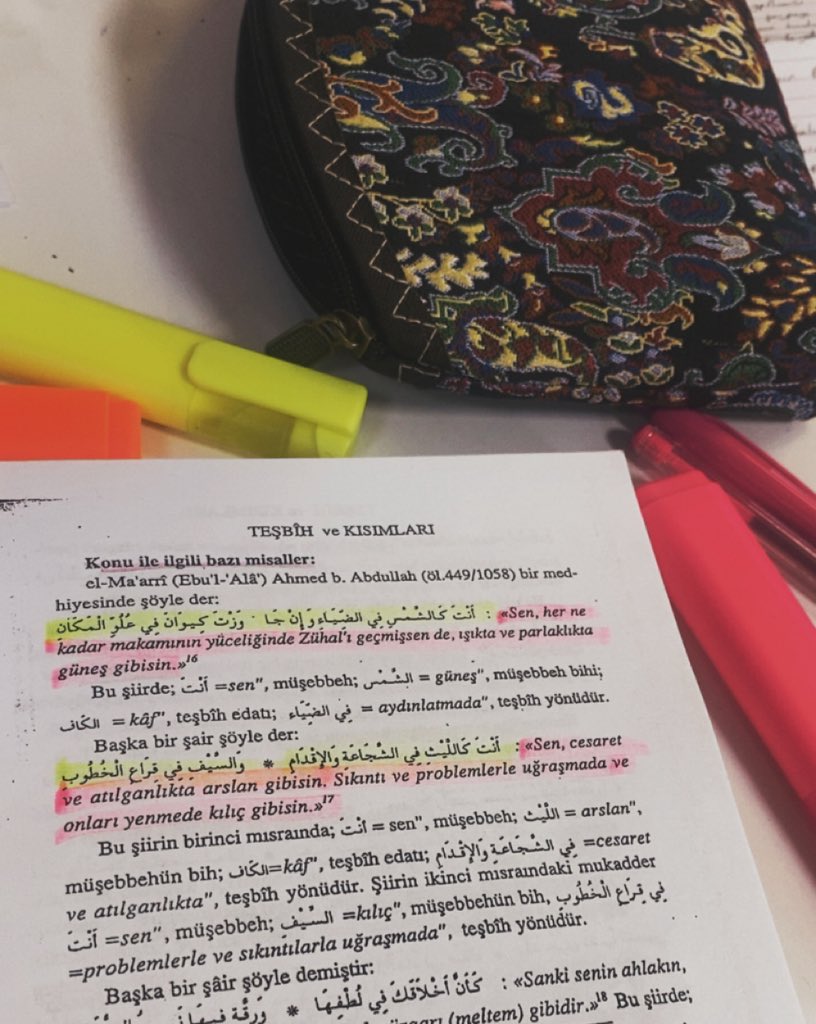 TEŞBÎH ve KISIMLARI
Konu ile ilgili bazı misaller:
el-Ma'arrî (Ebu'l-'Alâ') Ahmed b. Abdullah (öl.449/1058) bir med-
hiyesinde şöyle der:
أَنْتَ كَالشَّمْسِ فِي الضِّيَاءِ وَإِنْ جَا وَزْتَ كِيوَانَ فِي عُلُوِّ الْمَكَانِ : «Sen, her ne
kadar makamının yüceliğinde Zühal'i geçmişsen de, ışıkta ve parlaklıkta
güneş gibisin.»16
Bu şiirde; أَنْتَ =sen", müşebbeh; الشَّمْس = güneş", müşebbeh bihi;
الكَاف = kâf", teşbîh edatı; فِي الضِّيَاءِ = aydınlatmada", teşbîh yönüdür.
Başka bir şair şöyle der:
أَنْتَ كَاللَّيْثِ فِي الشَّجَاعَةِ وَالإِقْدَامِ * وَالسَّيْفِ فِي قِرَاعِ الْخُطُوبِ : «Sen, cesaret
ve atılganlıkta arslan gibisin. Sıkıntı ve problemlerle uğraşmada ve
onları yenmede kılıç gibisin.»17
Bu şiirin birinci mısraında; أَنْتَ = sen", müşebbeh; اللَّيْث = arslan",
müşebbehün bih; الكَاف=kâf", teşbîh edatı; فِي الشَّجَاعَةِ وَالإِقْدَامِ =cesaret
ve atılganlıkta", teşbîh yönüdür. Şiirin ikinci mısraındaki mukadder
أَنْتَ =sen", müşebbeh; السَّيْف =kılıç", müşebbehün bih, فِي قِرَاعِ الْخُطُوبِ
=problemlerle ve sıkıntılarla uğraşmada", teşbîh yönüdür.
Başka bir şâir şöyle demiştir:
كَأَنَّ أَخْلَاقَكَ فِي لُطْفِهَا * وَرِقَّةٍ فِيهَا : «Sanki senin ahlakın,
(meltem) gibidir.»18 Bu şiirde;